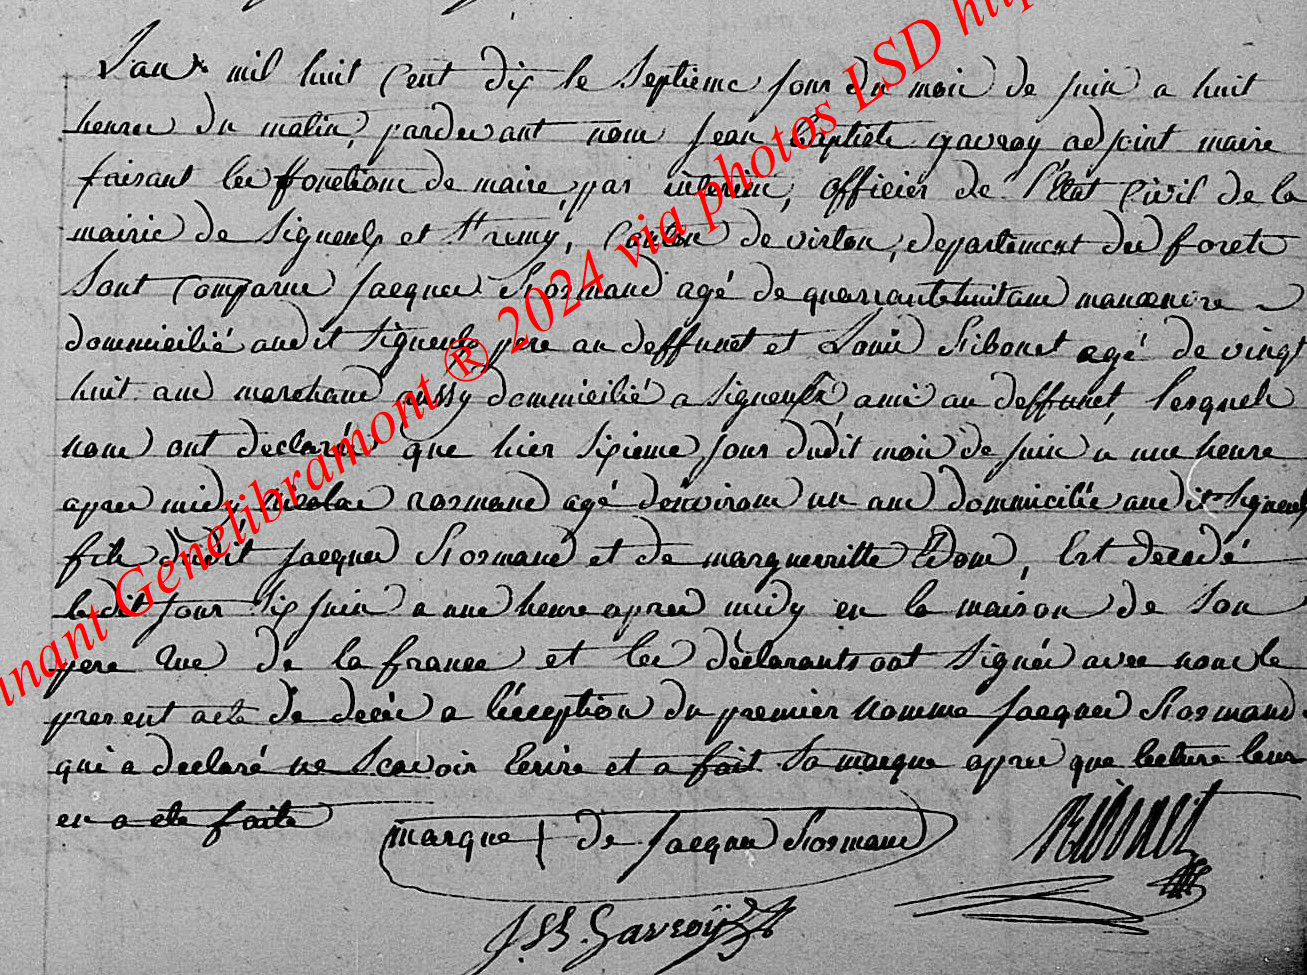 L'an mil huit Cent dix le Septieme jour du mois de juin a huit
heures du matin, pardevant nous jean Baptiste gavroy adjoint maire
faisant les fonctions de maire par interim, officier de l'État Civil de la
mairie de Signeulx et St remy, Canton de virton, departement des forets
Sont Comparus jacques Normand agé de quarrantehuitans manœuvre
dommicilié audit Signeulx pere au deffunct et Louis Ribonet agé de vingt
huit ans marchand aussy dommicilié a Signeulx, ami au deffunct, lesquels
nous ont declaré que hier Sixieme jour dudit mois de juin a une heure
apres midy nicolas normand agé denvirons un ans dommicilié audit Signeulx
fils dudit jacques Normand et de marguerritte Edom, Est decedé
ledit jour Six juin a une heure apres midy en la maison de Son
pere rue de la france et les déclarants ont Signés avec nous le
present acte de decès a l'éception du premier nommé jacques Normand
qui a declaré ne Scavoir Ecrire et a fait Sa marque apres que lecture leur
en a eté faite
marque † de jacques Normand
Ribonet
J. B. Gavroÿ
anant Genelibramont ® 2024 via photos LSD